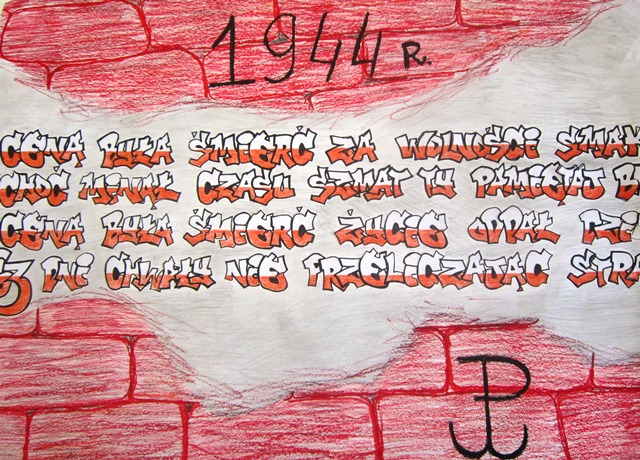 1944 R.
CENA BYŁA ŚMIERĆ ZA WOLNOŚCI SMAK
CHOĆ MINĄŁ CZASU SZMAT TY PAMIĘTAJ
CENA BYŁA ŚMIERĆ ŻYCIE ODDAŁ
63 DNI CHWAŁY NIE PRZELICZAJĄC